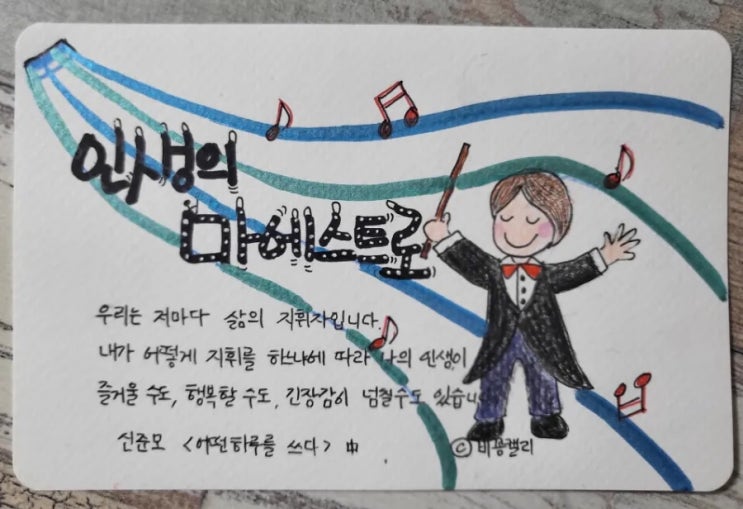 인생의
마에스트로
우리는 저마다 삶의 지휘자입니다.
내가 어떻게 지휘를 하느냐에 따라 나의 인생이
즐거울 수도, 행복할 수도, 긴장감이 넘칠수도 있습니
신준모 <어떤하루를 쓰다> 中
ⓒ비꽁갤리